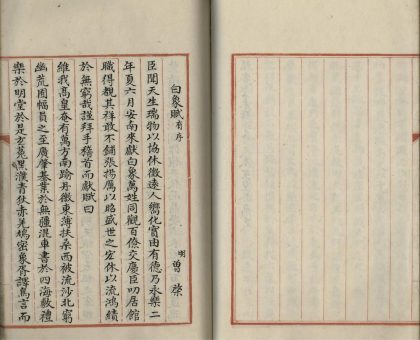 白象賦有序
明 曾棨
臣聞天生瑞物以協休徵遠人嚮化實由有德乃永樂二
年夏六月安南來獻白象萬姓同觀百僚交慶臣叨居館
職得覩其祥敢不鋪張揚厲以昭盛世之宏休以流鴻績
於無窮哉謹拜手稽首而獻賦曰
維我高皇奄有萬方南踰丹徼東薄扶桑西被流沙北窮
幽荒囿幅員之至廣肇基業於無疆混車書於四海敷禮
樂於明堂於是玄菟黑濮青狄赤羌鳩蜜象胥譯罵言而